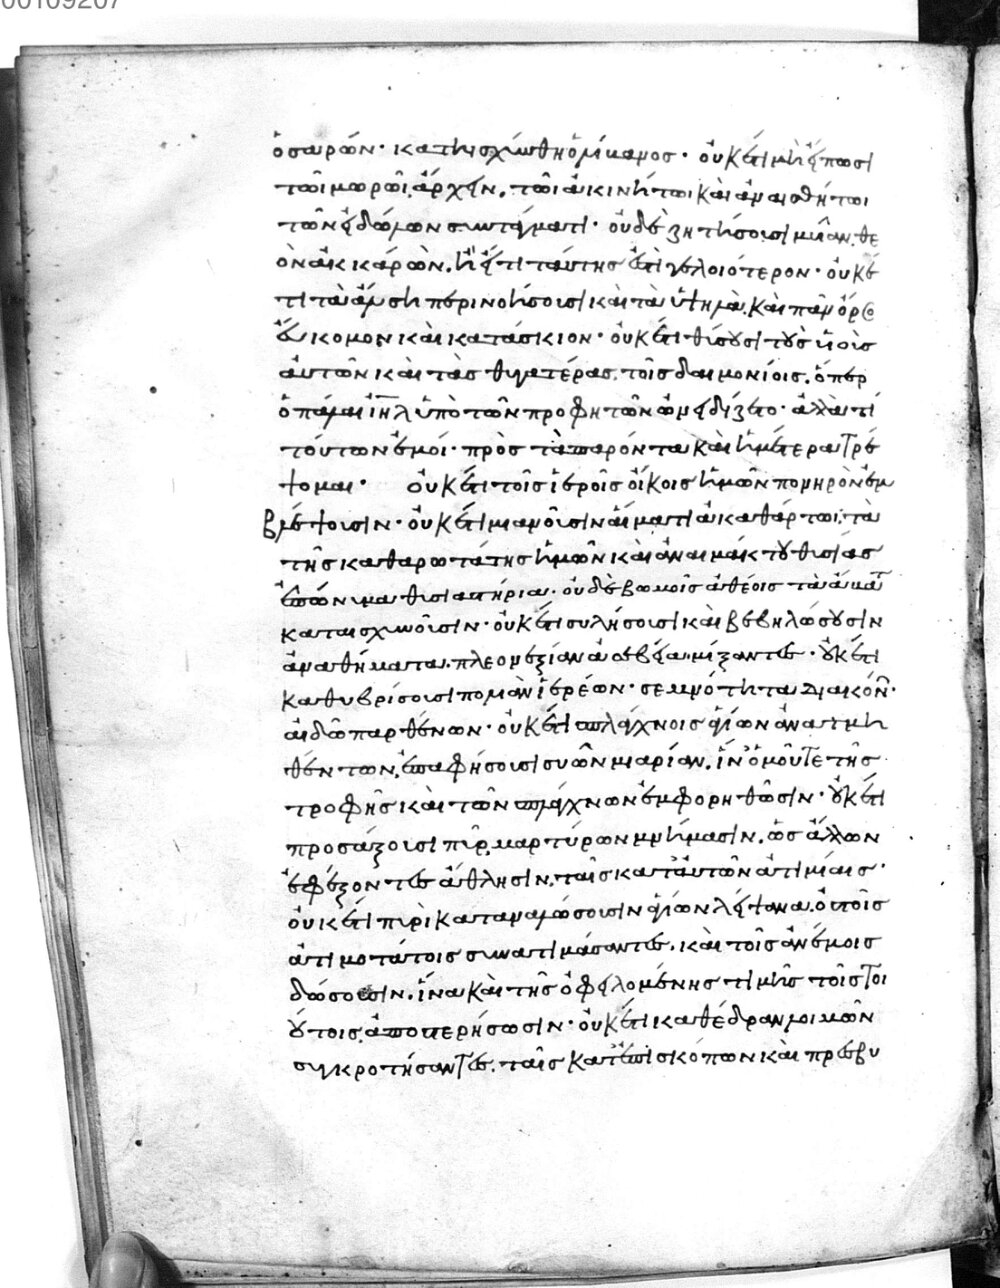 ὁ σαρών· κατηισχύνθη ὁ λίβανος· οὐκέτι μὴ εἴπωσι
τῶι μωρῶι, ἄρχειν, τῶι ἀκινήτωι καὶ ἀναισθήτωι
τῶν εἰδώλων συντάγματι· οὐδὲ ζητήσουσι μυῖαν, θε
ὸν ἀκκαρών, ἢ εἴ τι ταύτης ἐστὶ γελοιότερον· οὐκέ
τι τὰ ἄλση περινοήσουσι καὶ τὰ ὑψηλὰ, καὶ πᾶν ὄρος
εὔκομον καὶ κατάσκιον· οὐκέτι θύσουσι τοὺς υἱοὺς
αὐτῶν καὶ τὰς θυγατέρας, τοῖς δαιμονίοις, ὅπερ
ὁ πάλαι ιηλ ὑπὸ τῶν προφητῶν ὠνειδίζετο· ἀλλὰ τί
τούτων ἐμοί· πρὸς τὰ παρόντα καὶ ἡμέτερα τρέ
ψομαι· οὐκέτι τοῖς ἱεροῖς οἴκοις ἡμῶν πονηρὸν ἐμ
βλέψουσιν· οὐκέτι μιανοῦσιν αἵματι ἀκαθάρτωι, τὰ
τῆς καθαρωτάτης ἡμῶν καὶ ἀναιμάκτου θυσίας
ἐπώνυμα θυσιαστήρια· οὐδὲ βωμοῖς ἀθέοις τὰ ἅγια
καταισχυνοῦσιν· οὐκέτι συλήσουσι καὶ βεβηλώσουσιν
ἀναθήματα, πλεονεξίαν ἀσεβείαι μίξαντες· οὐκέτι
καθυβρίσουσι πολιὰν ἱερέων· σεμνότητα διακόν·
αἰδῶ παρθένων· οὐκέτι σπλάγχνοις ἁγίων ἀνατμη
θέντων, ἐπαφήσουσι συῶν μιαρίαν, ἵν' ὁμοῦ τε τῆς
τροφῆς καὶ τῶν σπλάγχνων ἐμφορηθῶσιν· οὐκέτι
προσάξουσι πῦρ, μαρτύρων μνήμασιν, ὡς ἄλλων
ἐφέξοντες ἄθλησιν, ταῖς κατ' αὐτῶν ἀτιμίαις·
οὐκέτι πυρὶ καταναλώσουσιν ἁγίων λείψανα, ὀστοῖς
ἀτιμοτάτοις συνατιμάσαντες, καὶ τοῖς ἀνέμοις
δώσουσιν, ἵνα καὶ τῆς ὀφειλομένης τιμῆς τοῖς τοι
ούτοις ἀποστερήσωσιν· οὐκέτι καθέδραν λοιμῶν
συγκροτήσαντες, ταῖς κατ' ἐπισκόπων καὶ πρεσβυ